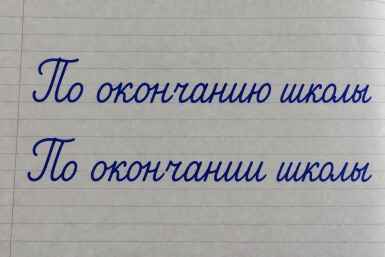 По окончанию школы
По окончании школы